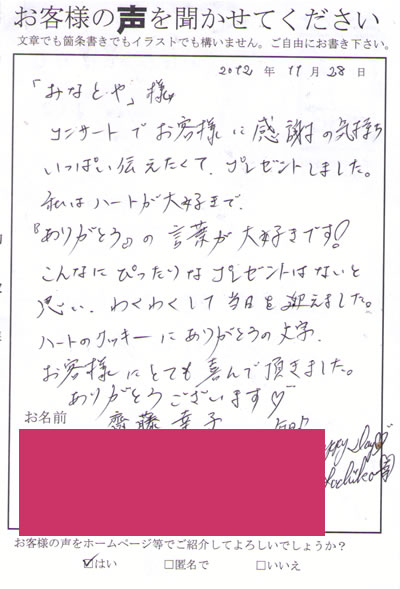 お客様の声を聞かせてください
文章でも箇条書きでもイラストでも構いません。ご自由にお書き下さい。
2012 年 11 月 28 日
「みなとや」様
コンサートでお客様に感謝の気持ち
いっぱい伝えたくて、プレゼントしました。
私はハートが大好きで、
『ありがとう』の言葉が大好きです!
こんなにぴったりなプレゼントはないと
思い、わくわくして当日を迎えました。
ハートのクッキーにありがとうの文字、
お客様にとても喜んで頂きました。
ありがとうございます♡
お名前
齋藤 幸子
お客様の声をホームページ等でご紹介してよろしいでしょうか?
☑はい □匿名で □いいえ